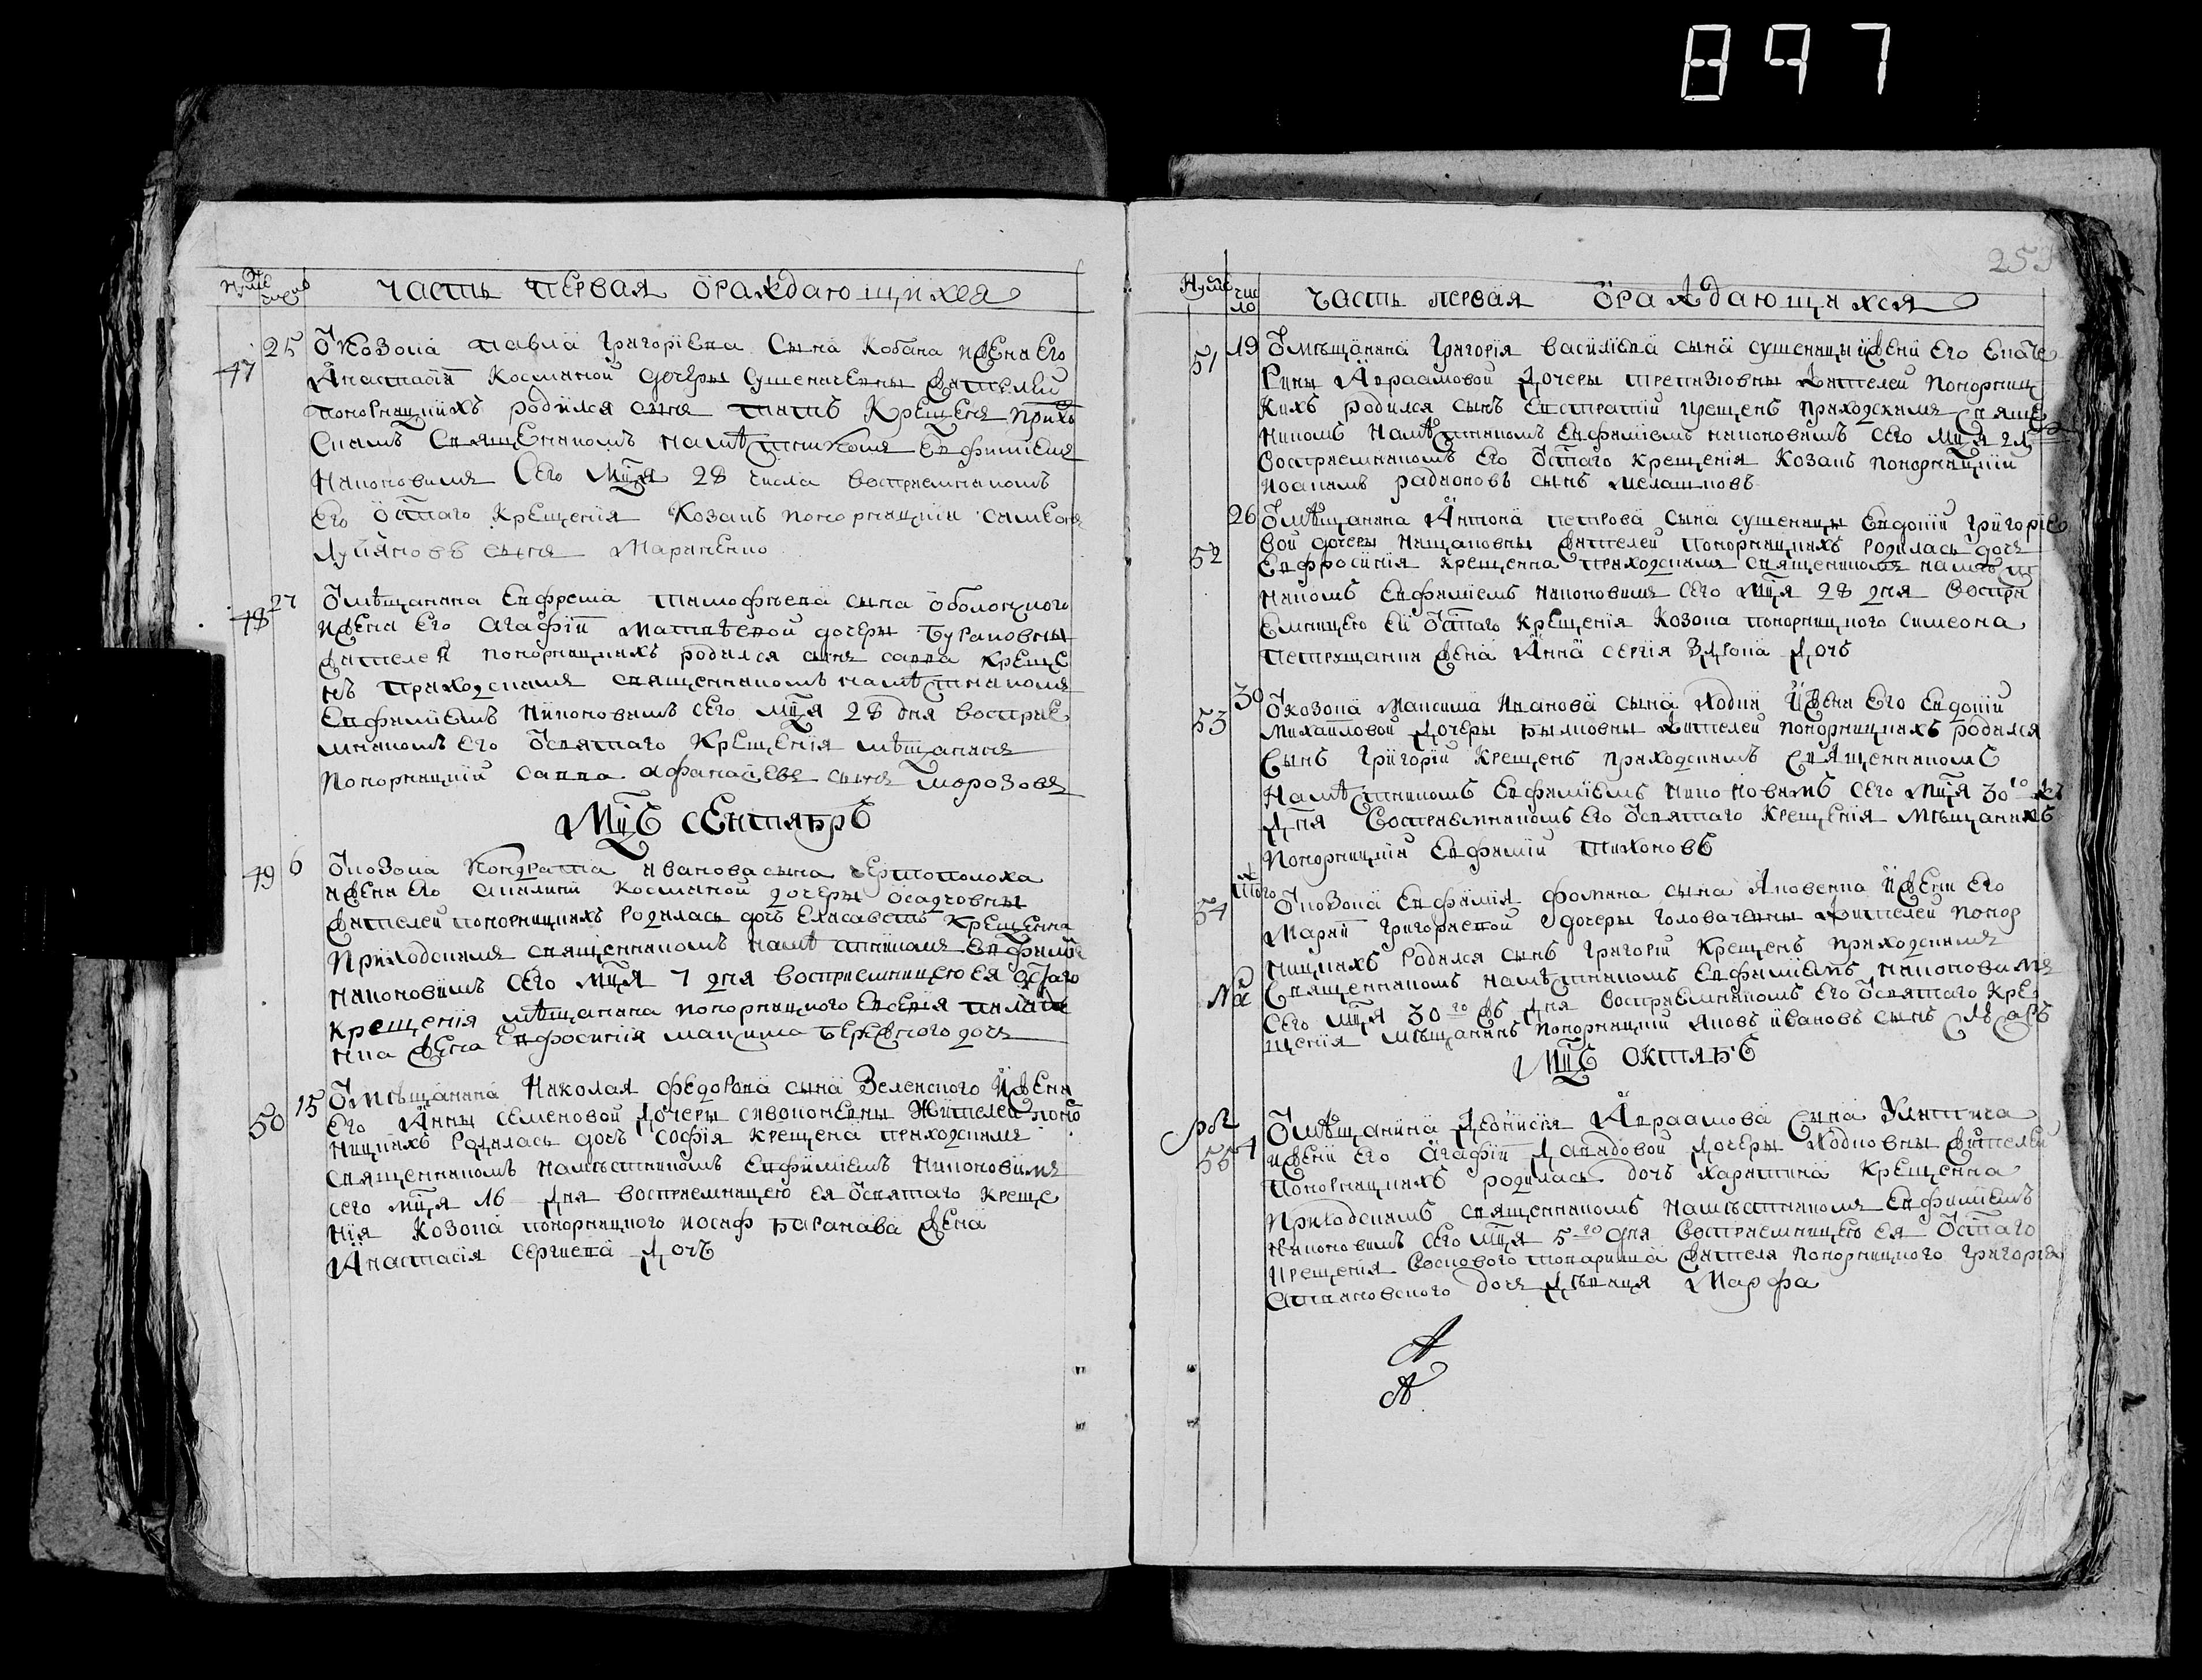 897
253
часть первая ѡраждающихся
25 Ѿ козака павла григорієва сына кобана и жены его
47 анастасіи косминой дочеры сушеничевны жителей
понорницкихъ родился сынъ крещенъ прихо
скимъ священникомъ намѣстникомъ евфиміемъ
никоновимъ сего мця 28 числа восприемникомъ
его ѿ стаго крещенія козакъ понорницкій симеонъ
лукяновъ сынъ мариченко
27 Ѿ мѣщанина ефрема тимофѣева сына оболонского
48 и жены его агафіи матвѣевой дочеры бурановны
жителей понорницкихъ родился сынъ савва креще
нъ приходскимъ священникомъ намѣстникомъ
евфиміемъ никоновимъ сего мця 28 дня восприе
мникомъ его ѿ святаго крещенія мѣщанинъ
понорницкій савва афанасіевъ сынъ морозовъ
мцъ сентябръ
49 6 Ѿ козака кондрата иванова сына чертополоха
и жены его акилины косминой дочеры осадчовны
жителей понорницкихъ родилась дочъ елисаветъ крещенна
приходскимъ священникомъ намѣстникомъ евфиміе
никоновимъ сего мця 7 дня восприемницею ея ѿ стаго
крещенія мѣщанина понорницкого евсевія
жена евфросинія максима бережного дочъ
50 15 Ѿ мѣщанина николая федорова сына зеленского и жены
его анны семеновой дочеры сивоконевны жителей поно
ницкихъ родилась дочъ софія крещена приходскимъ
священникомъ намѣстникомъ евфиміемъ никоновимъ
сего мця 16 дня восприемницею ея ѿ святаго креще
нія козака понорницкого иосиф баранова жена
анастасія сергиева дочъ
число
часть первая ѡраждающихся
51 19 Ѿ мѣщанина григорія василіева сына сушеницы и жены его екате
рины авраамовой дочеры жителей понорниц
кихъ родился сынъ евстратій крещенъ приходскимъ свяще
никомъ намѣстникомъ евфиміемъ никоновимъ сего мця
восприемникомъ его ѿ стаго крещенія козакъ понорницкій
иоакимъ радионовъ сынъ
26 Ѿ мѣщанина антона петрова сына сушеницы евдокіи григоріе
52 вой дочеры жителей понорницкихъ родилась дочъ
евфросинія крещенна приходскимъ священникомъ намѣст
никомъ евфиміемъ никоновимъ сего мця 28 дня воспри
емницею ей ѿ стаго крещенія козака понорницкого симеона
жена анна сергія дочъ
30 Ѿ козака максима иванова сына ходки и жены его евдокіи
53 михайловой дочеры жителей понорницкихъ родился
сынъ григорій крещенъ приходскимъ священникомъ
намѣстникомъ евфиміемъ никоновимъ сего мця 30го жъ
дня восприемникомъ его ѿ святаго крещенія мѣщанинъ
понорницкій евфимій тихоновъ
того
54 Ѿ козака евфимія фомина сына яковенка и жены его
маріи григориевой дочеры головачевны жителей понор
ницкихъ родился сынъ григорій крещенъ приходскимъ
священникомъ намѣстникомъ евфиміемъ никоновимъ
сего мця 30го жъ дня восприемникомъ его ѿ святаго кре
щенія мѣщанинъ понорницкій яковъ ивановъ сынъ
мцъ октябръ
55 4 Ѿ мѣщанина деонисія авраамова сына
и жены его агафіи давидовой дочеры ходковны жителей
понорницкихъ родилась дочъ харитина крещенна
приходскимъ священникомъ намѣстникомъ евфиміемъ
никоновимъ сего мця 5го дня восприемницею ея ѿ стаго
крещенія воскового товариша жителя понорницкого григорія
дочъ дѣвица марфа